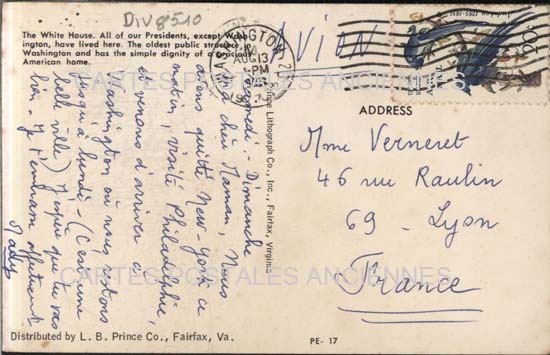 Div 8510
The White House. All of our Presidents, except Wash-
ington, have lived here. The oldest public structure in
Washington and has the simple dignity of a gracious
American home.
AVION
WASHINGTON
AUG 13
PM
ADDRESS
Mme Verneret
46 rue Raulin
69 - Lyon
France
Samedi - Dimanche
Ma chère Maman, Nous
avons quitté New-York ce
matin, visité Philadelphie,
et venons d'arriver à
Washington où nous restons
jusqu'à lundi - (C'est une
belle ville) J'espère que tu vas
bien. Je t'embrasse affectueusement
Prince Lithograph Co., Inc., Fairfax, Virginia
CARTES POSTALES ANCIENNES
Distributed by L. B. Prince Co., Fairfax, Va.
PE- 17